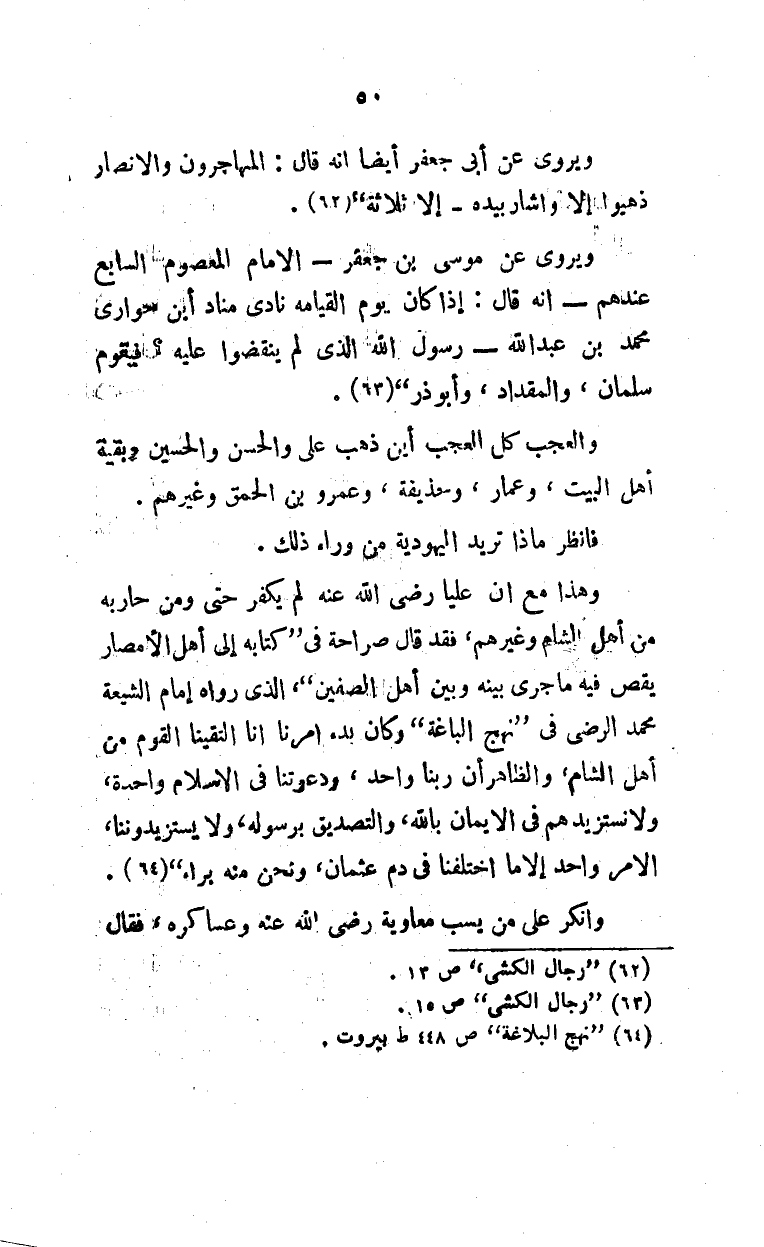 ٥٠
ويروى عن أبى جعفر أيضا انه قال : المهاجرون والانصار
ذهبوا إلا واشار بيده ــ إلا ثلاثة“(٦٢) .
ويروى عن موسى بن جعفر ــ الامام المعصوم السابع
عندهم ــ انه قال : إذا كان يوم القيامه نادى مناد أين حوارى
محمد بن عبدالله ــ رسول الله الذى لم ينقضوا عليه ؟ فيقوم
سلمان ، والمقداد ، وأبوذر“(٦٣) .
والعجب كل العجب أين ذهب على والحسن والحسين وبقية
أهل البيت ، وعمار ، وحذيفة ، وعمرو بن الحمق وغيرهم .
فانظر ماذا تريد اليهودية من وراء ذلك .
وهذا مع ان عليا رضى الله عنه لم يكفر حتى ومن حاربه
من أهل الشام وغيرهم، فقد قال صراحة فى ”كتابه إلى أهل الأمصار
يقص فيه ماجرى بينه وبين أهل الصفين“، الذى رواه إمام الشيعة
محمد الرضى فى ”نهج الباغة“ وكان بدء امرنا انا التقينا القوم من
أهل الشام، والظاهر أن ربنا واحد ، ودعوتنا فى الاسلام واحدة،
ولانستزيدهم فى الايمان بالله، والتصديق برسوله، ولا يستزيدوننا،
الامر واحد إلاما اختلفنا فى دم عثمان، ونحن منه براء“(٦٤) .
وانكر على من يسب معاوية رضى الله عنه وعساكره ، فقال
(٦٢) ”رجال الكشى“ ص ١٣ .
(٦٣) ”رجال الكشى“ ص ١٥ .
(٦٤) ”نهج البلاغة“ ص ٤٤٨ ط بيروت .